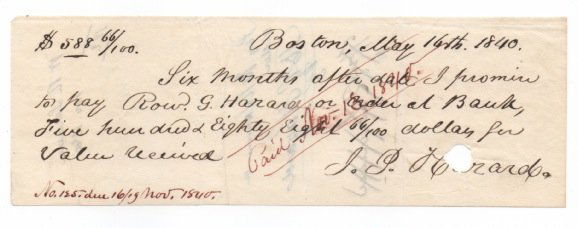 $ 588 66/100. Boston, May 16th. 1840.
Six months after date I promise
to pay Row. G. Hazard or order at Bank,
Five hundred Eighty Eight 66/100 dollars for
Value received J. P. Hazard.
Paid Nov. 18. 1840.
No. 135. due 16/19 Nov. 1840.